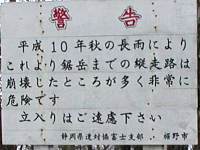 警告
平成10年秋の長雨により
これより鋸岳までの縦走路は
崩壊したところが多く非常に
危険です
立入りはご遠慮下さい
静岡県遭対協富士支部・裾野市